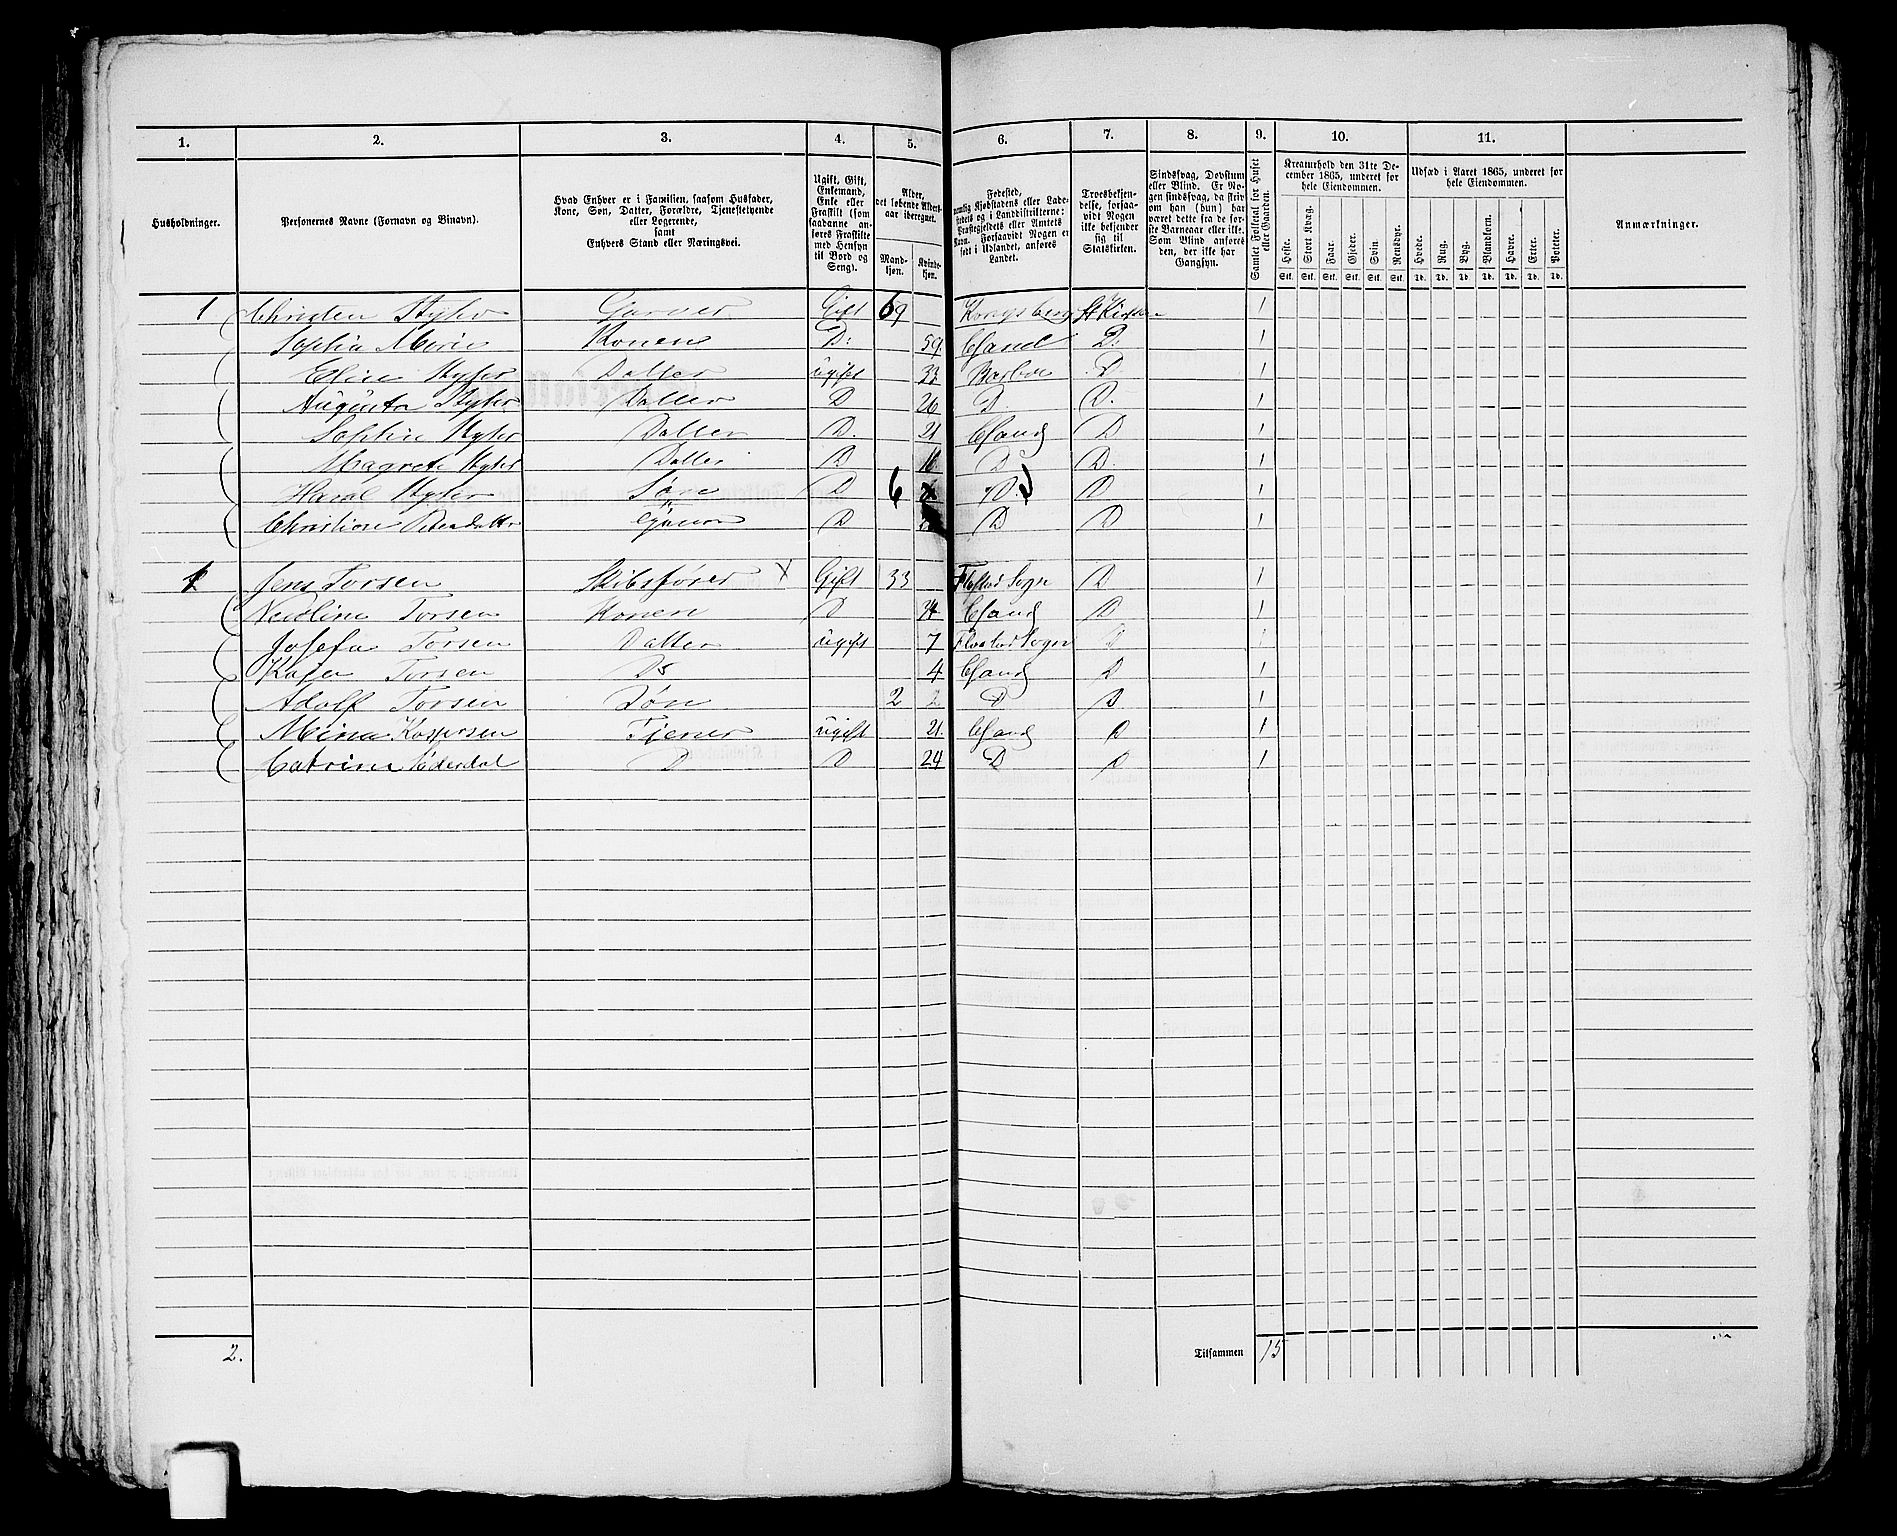 1. 2. 3. 4. 5. 6. 7. 8. 9. 10. 11.
Husholdninger.
Personernes Navne (Fornavn og Binavn).
Hvad Enhver er i Familien, saasom Husfader,
Kone, Søn, Datter, Forældre, Tjenestetyende
eller Logerende,
samt
Enhvers Stand eller Næringsvei.
Ugift, Gift,
Enkemand,
Enke eller
Fraskilt (som
saadanne an-
føres Fraskilte
med Hensyn
til Bord og
Seng).
Alder,
det løbende Alders-
aar iberegnet.
Mand-
kjøn.
Kvinde-
kjøn.
Fødested,
nemlig Kjøbstadens eller Lade-
stedets og i Landdistrikterne:
Præstegjeldets eller Amtets
Navn. Forsaavidt Nogen er
født i Udlandet, anføres
Landet.
Troesbekjen-
delse, forsaa-
vidt Nogen
ikke bekjender
sig til
Statskirken.
Sindssvag, Døvstum
eller Blind. Er No-
gen sindssvag, da skriv
om han (hun) har
været dette fra de før-
ste Barneaar eller ikke.
Som Blind anføres
den, der ikke har
Gangsyn.
Samlet Folketal for Huset
eller Gaarden.
Kreaturhold den 31te De-
cember 1865, underet for
hele Eiendommen.
Heste. Stort Kvæg. Faar. Gjeder. Svin. Rensdyr.
Stk. Stk. Stk. Stk. Stk. Stk.
Udsæd i Aaret 1865, underet for
hele Eiendommen.
Hvede. Rug. Byg. Blandkorn. Havre. Erter. Poteter.
Td. Td. Td. Td. Td. Td. Td.
Anmærkninger.
1 Christen Garver Gift 69 Kongsberg 1
Sophia Marie Konen D: 59. Csand D: 1
Elise Datter ugift 33 D 1
Augusta Datter D 26 D D. 1
Sophie Datter D. 21 Csand D 1
Magrete Datter D 16 D D. 1
Haral Søn D 6 D D 1
Christiane D D D 1
1 Jens Torsen Skibsfører X Gift 33 Sogn D 1
Torsen Konen D 34 Csand D 1
Josefa Torsen Datter ugift 7 Sogn D 1
Torsen Do 4 Csand D 1
Adolf Torsen Søn 2 2 D D 1
Mina Kaspersen Tjener ugift 21. Csand D 1
Catrine D D 24 D D 1
2. Tilsammen 15